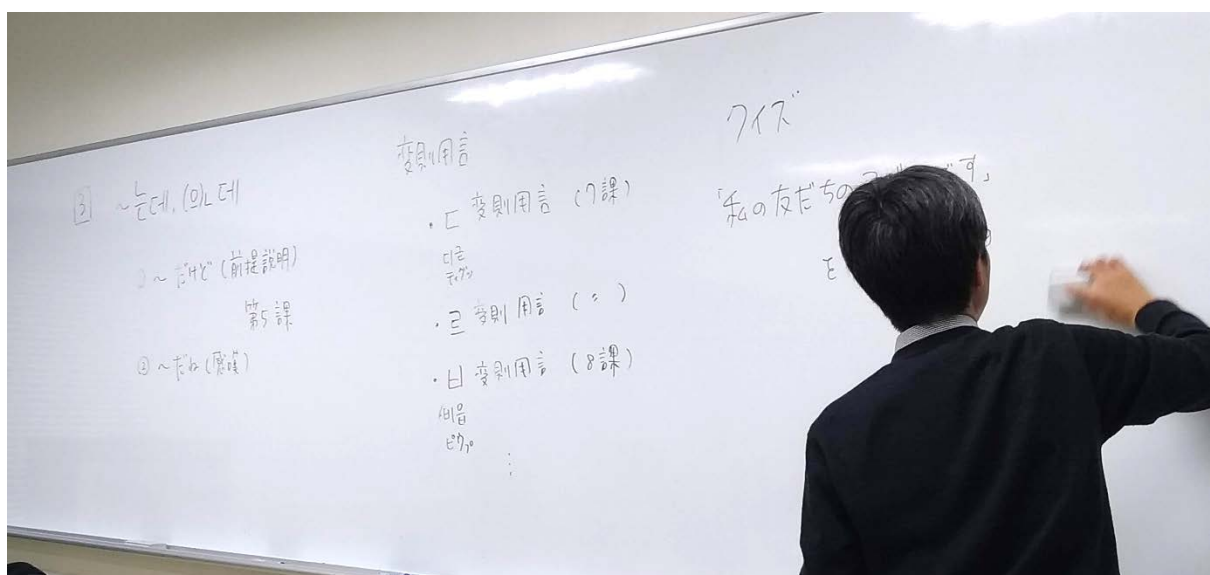 3 ~는데, (으)ㄴ데
① ~だけど(前提説明)
第5課
② ~だね(感嘆)
変則用言
・ㄷ変則用言(7課)
디귿
ティグッ
・ㄹ変則用言(〃)
・ㅂ変則用言(8課)
비읍
ピウプ
⋮
クイズ
「私の友だちの す」